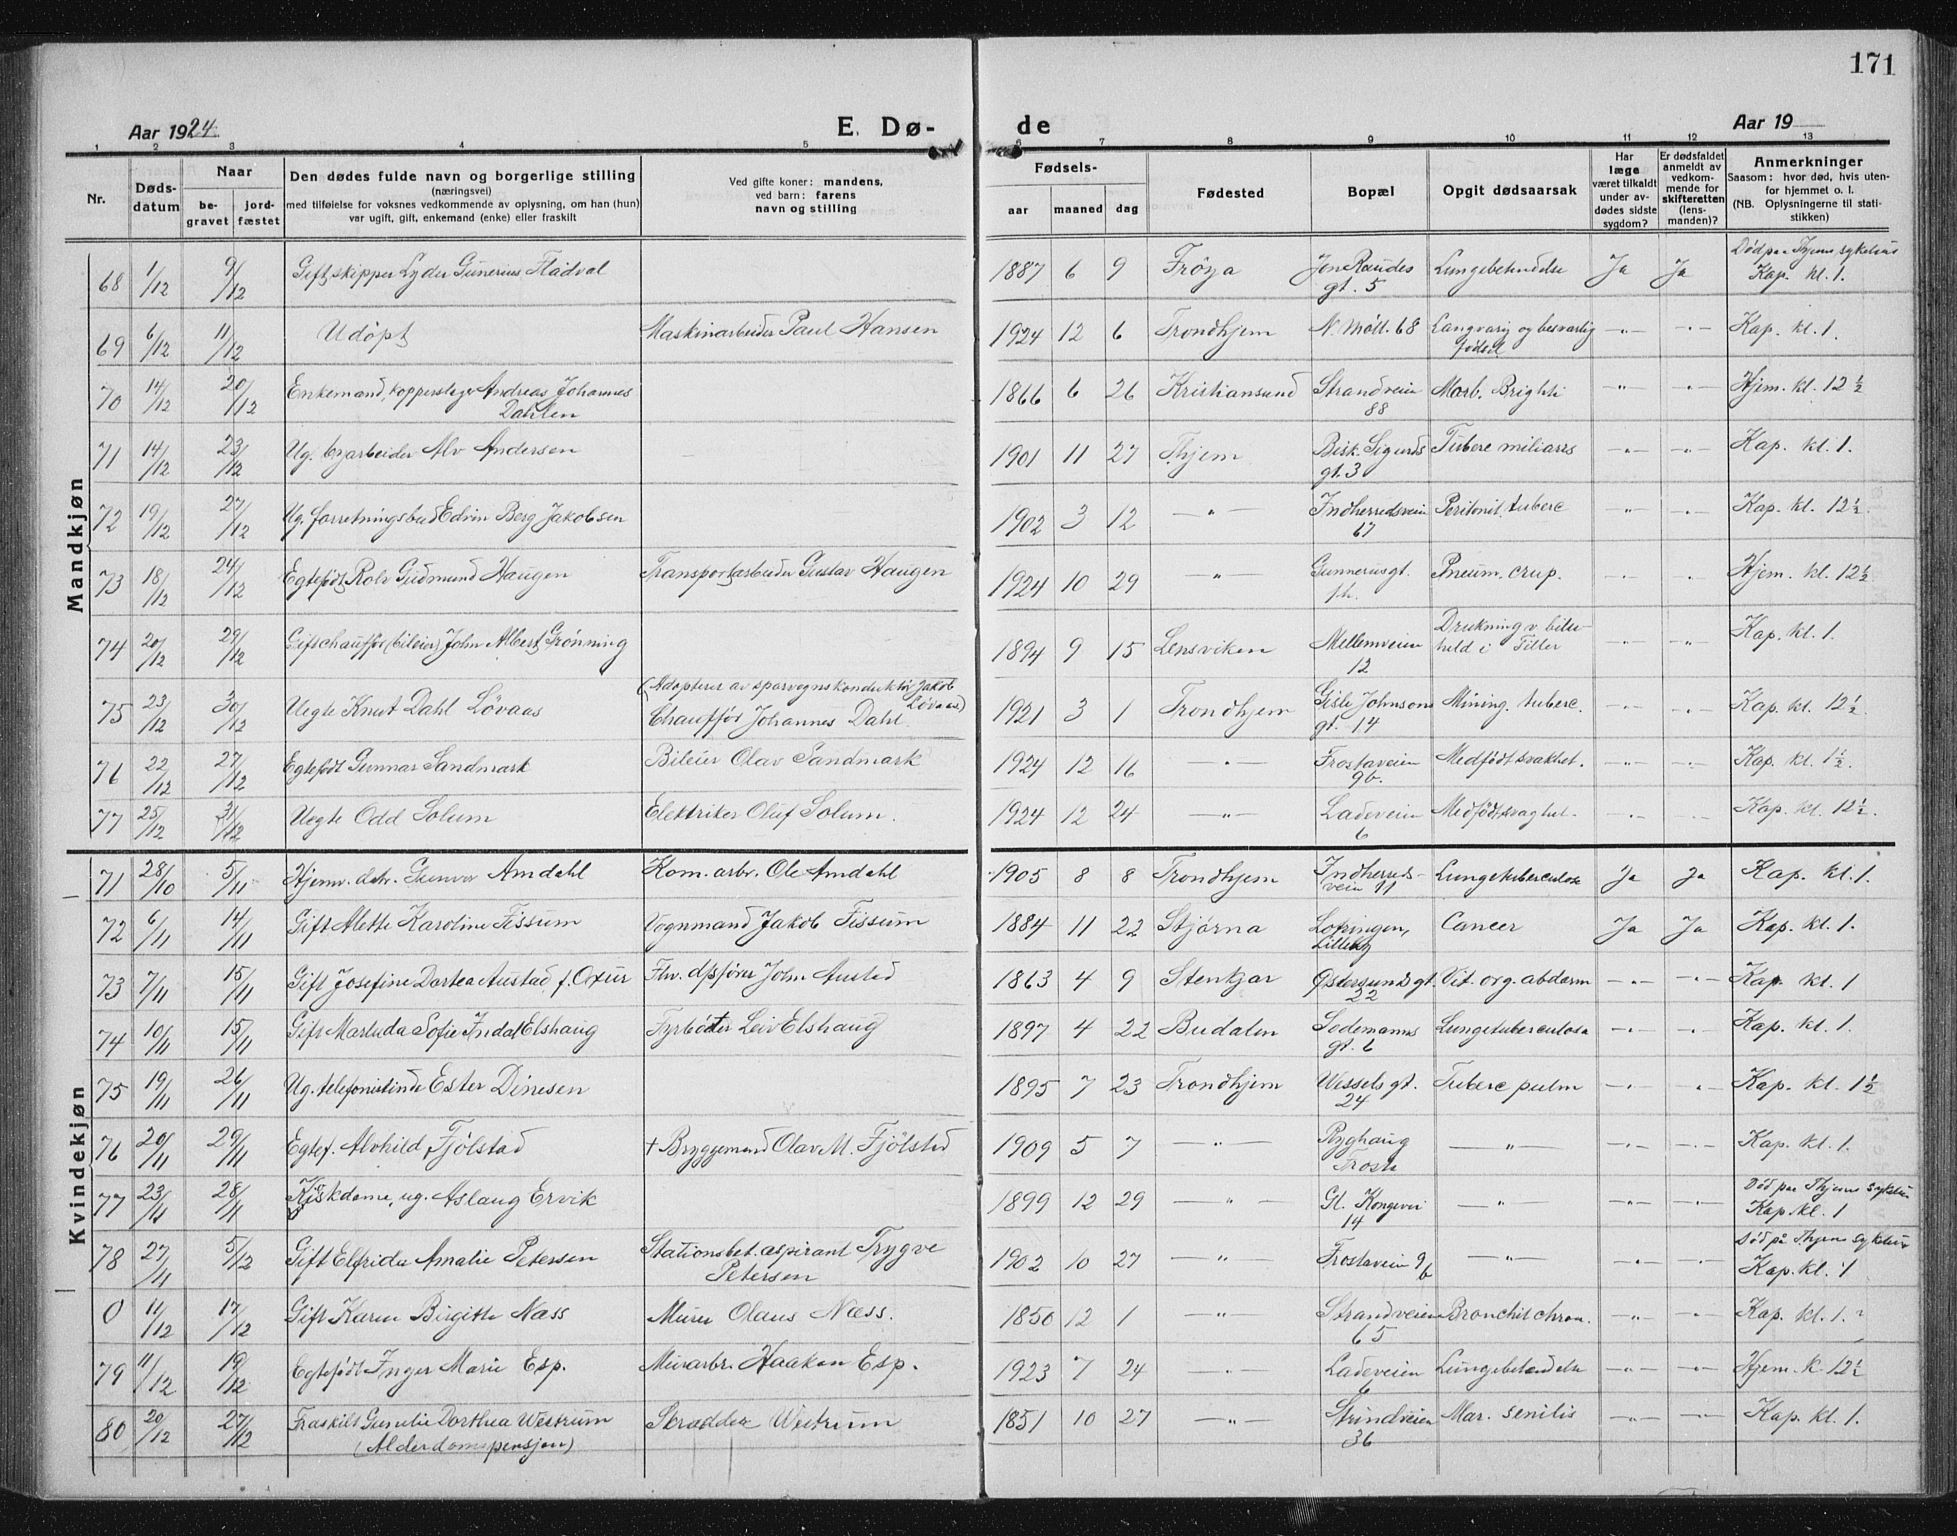 171
Aar 1924
E. Dø-
de
Aar 19
1 2 3 4 5 6 7 8 9 10 11 12 13
Nr.
Døds-
datum
Naar
be-
gravet
jord-
fæstet
Den dødes fulde navn og borgerlige stilling
(næringsvei)
med tilføielse for voksnes vedkommende av oplysning, om han (hun)
var ugift, gift, enkemand (enke) eller fraskilt
Ved gifte koner: mandens,
ved barn: farens
navn og stilling
Fødsels-
aar maaned dag
Fødested
Bopæl
Opgit dødsaarsak
Har
læge
været tilkaldt
under av-
dødes sidste
sygdom?
Er dødsfaldet
anmeldt av
vedkom-
mende for
skifteretten
(lens-
manden)?
Anmerkninger
Saasom: hvor død, hvis uten-
for hjemmet o. l.
(NB. Oplysningerne til stati-
stikken)
Mandkjøn
68 1/12 9/12 Gift skipper Lyder Gunerius Fladval 1887 6 9 Frøya Jon Raudes gt. 5 Lungebetendelse Ja Ja Død paa Thjems sykehus Kap. kl. 1.
69 6/12 11/12 Udøpt Maskinarbeider Paul Hansen 1924 12 6 Trondhjem N. Møll. 68 Langvarig og besværlig fødsel -"- -"- Kap. kl. 1.
70 14/12 20/12 Enkemand, kopperslager Andreas Johannes Dahlen 1866 6 26 Kristiansund Strandveien 88 Morb. Brighti -"- -"- Hjem. kl. 12 1/2
71 14/12 23/12 Ug. byarbeider Alv Andersen 1901 11 27 Thjem Bisk. Sigurds gt. 3 Tuberc miliaris -"- -"- Kap. kl. 1.
72 19/12 27/12 Ug. forretningsbud Edvin Berg Jakobsen 1902 3 12 -"- Indherredsveien 67 Peritonit. tuberc -"- -"- Kap. kl. 12 1/2
73 18/12 24/12 Egtefødt Rolv Gudmund Haugen Transportarbeider Gustav Haugen 1924 10 29 -"- Gunnerusgt. Pneum. crup. -"- -"- Hjem. kl. 12 1/2
74 20/12 29/12 Gift chauffør (bileier) John Albert Grønning 1894 9 15 Lensviken Mellemveien 12 Drukning v. biluheld i Tiller -"- -"- Kap. kl. 1.
75 23/12 30/12 Uegte Knut Dahl Løvaas (Adopteret av sporvognskonduktør Jakob Løvaas) Chauffør Johannes Dahl. 1921 3 1 Trondhjem Gisle Johnsons gt. 14 Mining. tuberc. -"- -"- Kap. kl. 12 1/2
76 22/12 27/12 Egtefødt Gunnar Sandmark Bileier Olav Sandmark 1924 12 16 -"- Frostaveien 9b. Medfødt svakhet. -"- -"- Kap. kl. 1 1/2.
77 25/12 31/12 Uegte Odd Solum Elektriker Oluf Solum. 1924 12 24 -"- Ladeveien 6 Medfødt svaghet. -"- -"- Kap. kl. 12 1/2.
Kvindekjøn
71 28/10 5/11 Hjemv. dtr. Gunvor Amdahl Kom. arbr. Ole Amdahl 1905 8 8 Trondhjem Indherredsveien 11 Lungetuberculose Ja Ja Kap. kl. 1.
72 6/11 14/11 Gift Alette Karoline Fissum Vognmand Jakob Fissum 1884 11 22 Stjørna Lilleby Cancer Ja Ja Kap. kl. 1.
73 7/11 15/11 Gift Josefine Dortea Austad f. Oxur Fhv. John Austad 1863 4 9 Stenkjær Østersunds gt. 22 Vit. org. abdom -"- -"- Kap. kl. 1
74 10/11 15/11 Gift Marluda Sofie Indal Elshaug Fyrbøter Leiv Elshaug 1897 4 22 Budalen Sodemanns gt. 6 Lungetuberculose -"- -"- Kap. kl. 1.
75 19/11 26/11 Ug. telefonistinde Ester Dinesen 1895 7 23 Trondhjem Wessels gt. 24 Tuberc pulm -"- -"- Kap. kl. 1 1/2
76 20/11 29/11 Egtef. Alvhild Fjølstad + Bryggemand Olav M. Fjølstad 1909 5 7 -"- Ryghaug Frosta -"- -"- -"- Kap. kl. 1.
77 23/11 28/11 Kioskdame, ug. Aslaug Ervik 1899 12 29 -"- Gl. Kongevei 14 -"- -"- -"- Død paa Thjems sykehus Kap. kl. 1
78 27/11 5/12 Gift Elfrida Amalie Petersen Stationsbet. aspirant Trygve Petersen 1902 10 27 -"- Frostaveien 9b -"- -"- -"- Død på Thjems sykehus Kap. kl. 1
0 11/12 17/12 Gift Karen Birgitte Næss Murer Olaus Næss. 1850 12 1 -"- Strandveien 65 Bronchit chron. -"- -"- Kap. kl. 1.
79 11/12 19/12 Egtefødt Inger Marie Esp. Murarbr. Haakon Esp. 1923 7 24 -"- Ladeveien 6 Lungebetændelse -"- -"- Hjem. k. 12 1/2
80 20/12 27/12 Fraskilt Gunelie Dorthea Westrum (Alderdomspensjon) Skrædder Westrum 1851 10 27 -"- Strindveien 36 Mar. senilis -"- -"- Kap. kl. 1.